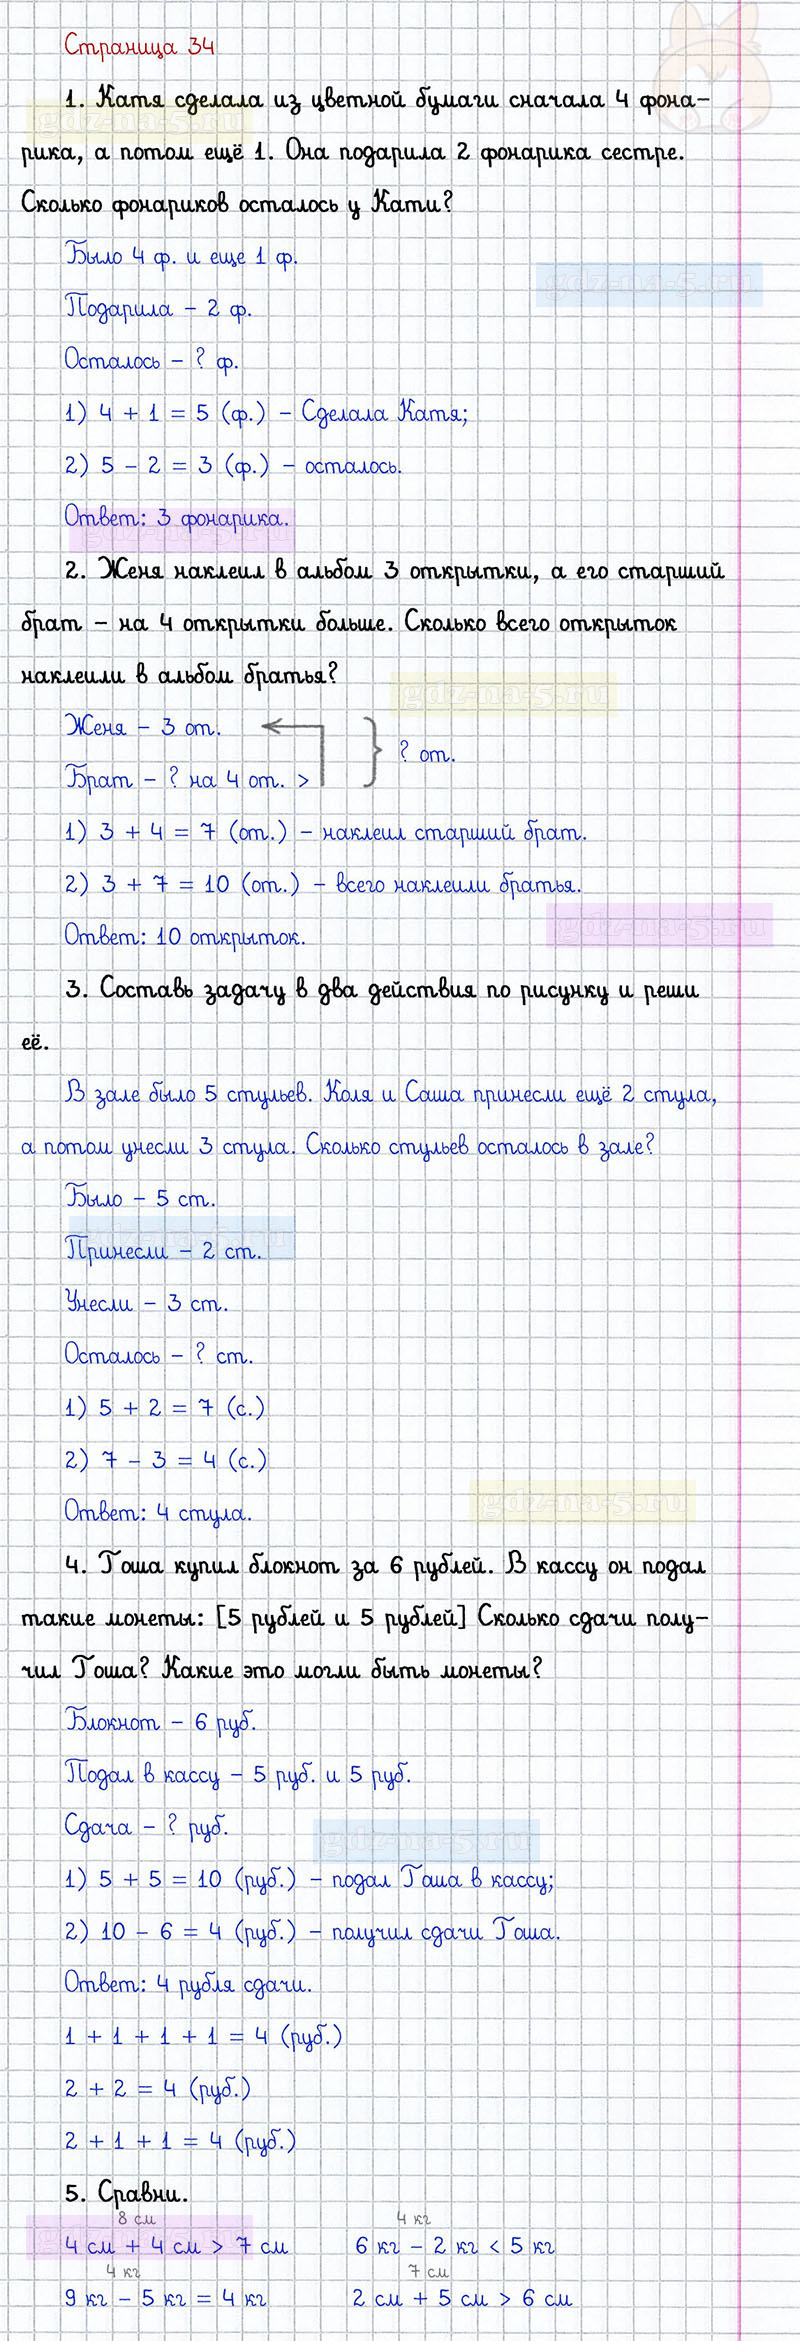 Страница 34
1. Катя сделала из цветной бумаги сначала 4 фона-
gdz-na-5.ru
рика, а потом ещё 1. Она подарила 2 фонарика сестре.
Сколько фонариков осталось у Кати?
Было 4 ф. и еще 1 ф.
gdz-na-5.ru
Подарила – 2 ф.
Осталось – ? ф.
1) 4 + 1 = 5 (ф.) – Сделала Катя;
2) 5 – 2 = 3 (ф.) – осталось.
Ответ: 3 фонарика.
gdz-na-5.ru
2. Женя наклеил в альбом 3 открытки, а его старший
брат – на 4 открытки больше. Сколько всего открыток
наклеили в альбом братья?
gdz-na-5.ru
Женя – 3 от.
? от.
Брат – ? на 4 от. >
1) 3 + 4 = 7 (от.) – наклеил старший брат.
2) 3 + 7 = 10 (от.) – всего наклеили братья.
gdz-na-5.ru
Ответ: 10 открыток.
3. Составь задачу в два действия по рисунку и реши
её.
В зале было 5 стульев. Коля и Саша принесли ещё 2 стула,
а потом унесли 3 стула. Сколько стульев осталось в зале?
Было – 5 ст.
gdz-na-5.ru
Принесли – 2 ст.
Унесли – 3 ст.
Осталось – ? ст.
1) 5 + 2 = 7 (с.)
2) 7 – 3 = 4 (с.)
gdz-na-5.ru
Ответ: 4 стула.
4. Гоша купил блокнот за 6 рублей. В кассу он подал
такие монеты: [5 рублей и 5 рублей] Сколько сдачи полу-
чил Гоша? Какие это могли быть монеты?
Блокнот – 6 руб.
Подал в кассу – 5 руб. и 5 руб.
Сдача – ? руб.
gdz-na-5.ru
1) 5 + 5 = 10 (руб.) – подал Гоша в кассу;
2) 10 – 6 = 4 (руб.) – получил сдачи Гоша.
Ответ: 4 рубля сдачи.
1 + 1 + 1 + 1 = 4 (руб.)
2 + 2 = 4 (руб.)
2 + 1 + 1 = 4 (руб.)
5. Сравни.
8 см 4 кг
gdz-na-5.ru
4 см + 4 см > 7 см 6 кг – 2 кг < 5 кг
4 кг 7 см
9 кг – 5 кг = 4 кг 2 см + 5 см > 6 см